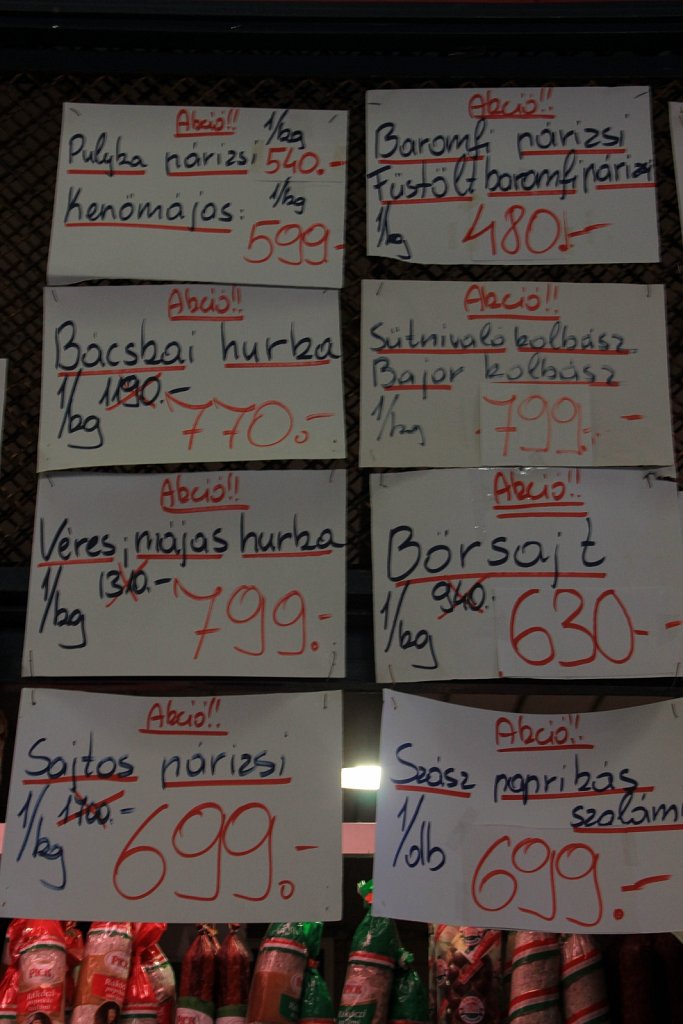 Akció!!
1/kg
Pulyka párizsi 540.-
1/kg
Kenőmájas: 599.-
Akció!!
Baromfi párizsi
Füstölt baromfi párizsi
1/kg 480.-
Akció!!
Bácskai hurka
1/kg 1190.- 770.-
Akció!!
Sütnivaló kolbász
Bajor kolbász
1/kg 799.-
Akció!!
Véres, májas hurka
1/kg 1310.- 799.-
Akció!!
Bőrsajt
1/kg 940.- 630.-
Akció!!
Sajtos párizsi
1/kg 1700.- 699.-
Akció!!
Szász paprikás
szalámi
1/db 699.-
PICK
PICK
Rákóczi